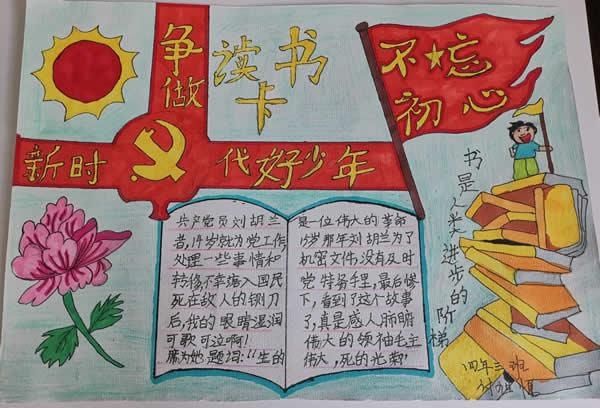 争做
读书卡
新时代好少年
不忘
初心
书是人类进步的阶梯
共产党员刘胡兰是一位伟大的革命
者,14岁就为党工作,15岁那年刘胡兰为了
处理一些事情和机密文件,没有及时
转移不幸落入国民党特务手里,最后惨
死在敌人的铡刀下,看到了这个故事
后,我的眼睛湿润了,真是感人肺腑
可歌可泣啊!伟大的领袖毛主
席为她题词:“生的伟大,死的光荣”
四年三班